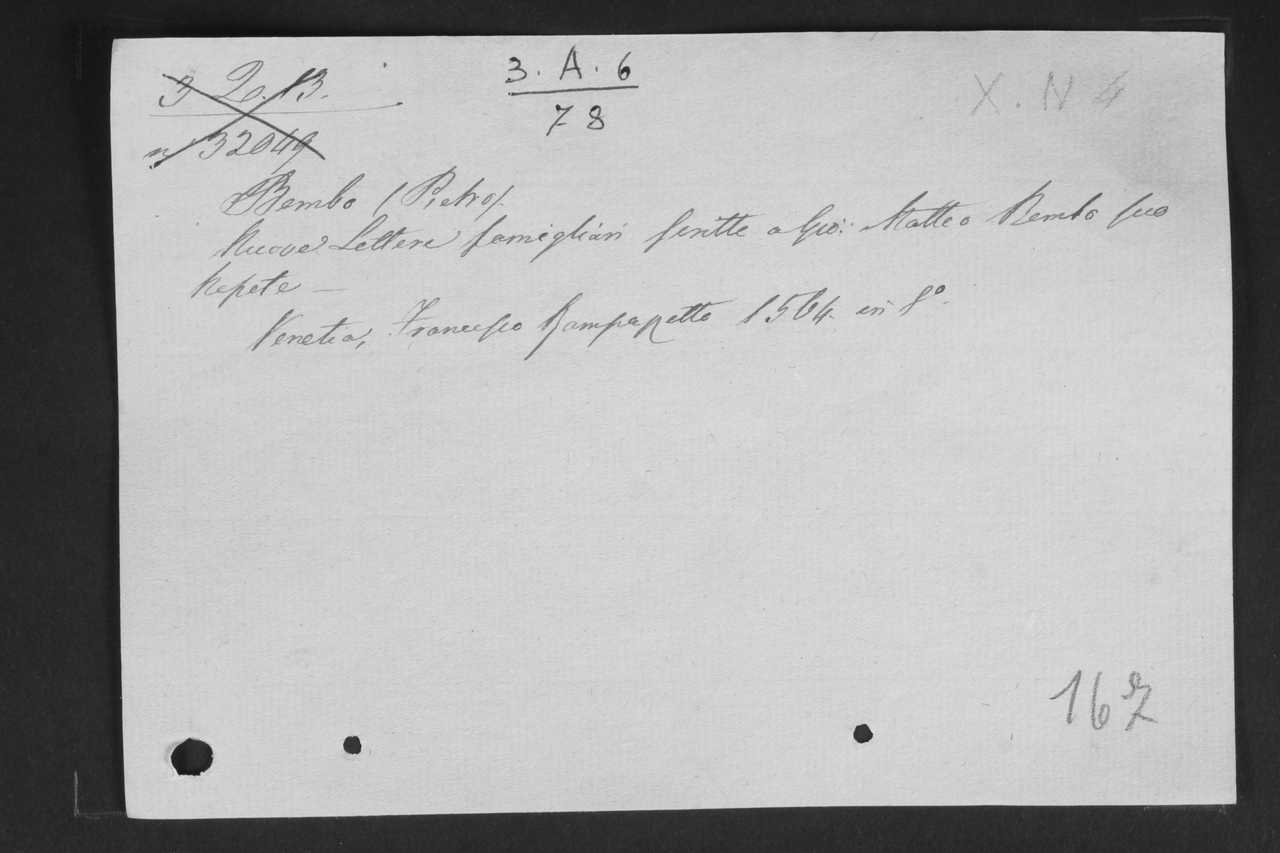 3 Q. 13.
n° 32049
3. A. 6
78
X. N 4
Bembo (Pietro).
Nuove Lettere famigliari scritte a Gio: Matteo Bembo suo
Nepote —
Venetia, Francesco Rampazetto 1564. in 8°.
167